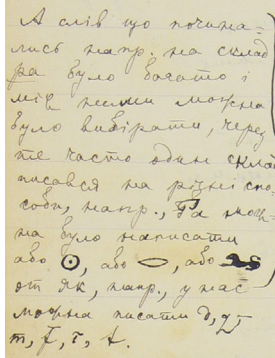 А слів що почина-
лись напр. на склад
ра було богато і
між ними можна
було вибірати, через
те часто один склад
писався на різні спо-
соби, напр., Ра мож-
на було написати
або ☉, або, або
от як, напр., у нас
можна писати
т, т.